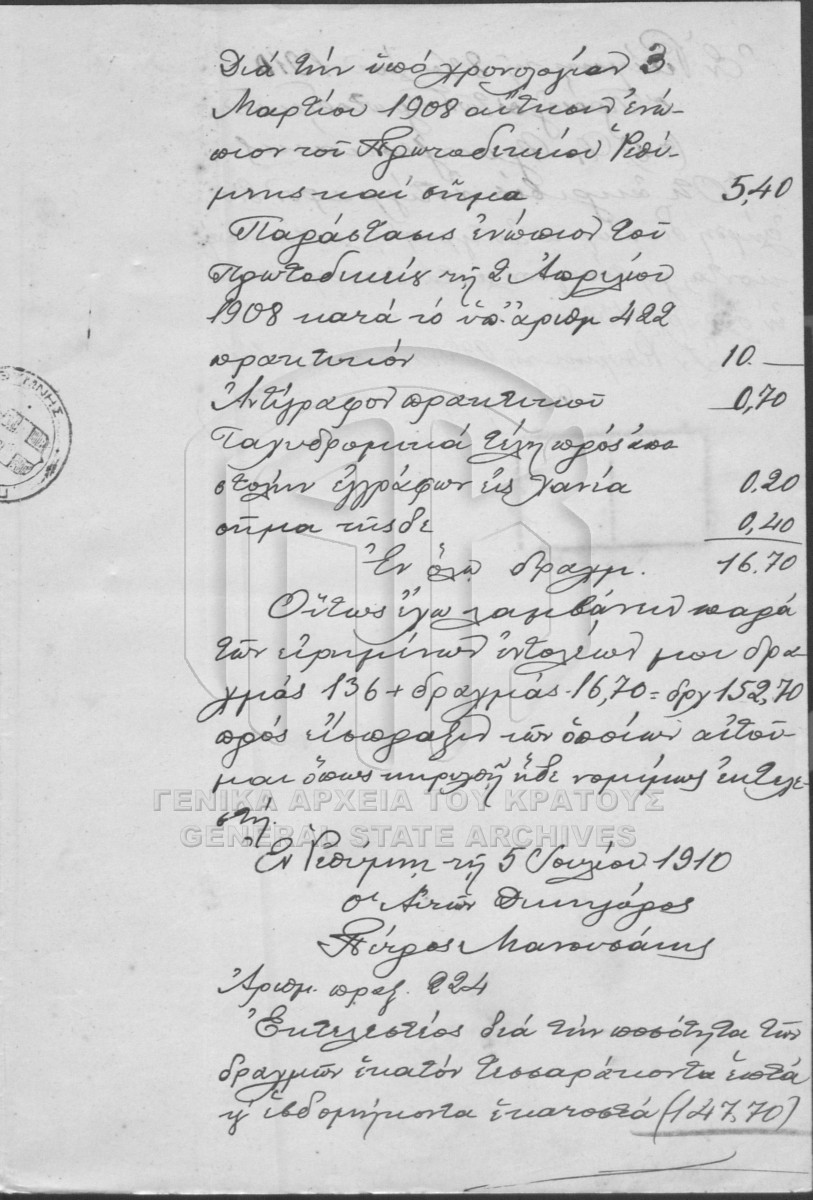 Διά τήν ὑπό χρονολογίαν 3
Μαρτίου 1908 αἴτησιν ἐνώ-
πιον τοῦ Πρωτοδικείου Ρεθύ-
μνης καί σῆμα 5,40
Παράστασις ἐνώπιον τοῦ
Πρωτοδικείου τῇ 2 Ἀπριλίου
1908 κατά τό ὑπ' ἀριθμ 422
πρακτικόν 10.—
Ἀντίγραφον πρακτικοῦ 0,70
Ταχυδρομικά τέλη πρός ἀπο
στολήν ἐγγράφων εἰς Χανία 0.20
σῆμα τῆςδε 0,40
Ἐν ὅλῳ δραγμ. 16.70
Οὕτως ἔχω λαμβάνειν παρά
τῶν εἰρημένων ἐντολέων μου δρα-
χμάς 136 + δραχμάς 16,70 = δρχ 152,70
πρός εἴσπραξιν τῶν ὁποίων αἰτοῦ
μαι ὅπως κηρυχθῇ ἥδε νομίμως ἐκτελε-
στή.
Ἐν Ρεθύμνῃ τῇ 5 Ἰουλίου 1910
ὁ Αἰτῶν Δικηγόρος
Πέτρος Μανουσάκης
Ἀριθμ. πραξ. 224
Ἐκτελεστέος διά τήν ποσότητα τῶν
δραχμῶν ἑκατόν τεσσαράκοντα ἑπτά
ϗ ἑβδομήκοντα ἑκατοστά (147.70)
ΓΕΝΙΚΑ ΑΡΧΕΙΑ ΤΟΥ ΚΡΑΤΟΥΣ
GENERAL STATE ARCHIVES